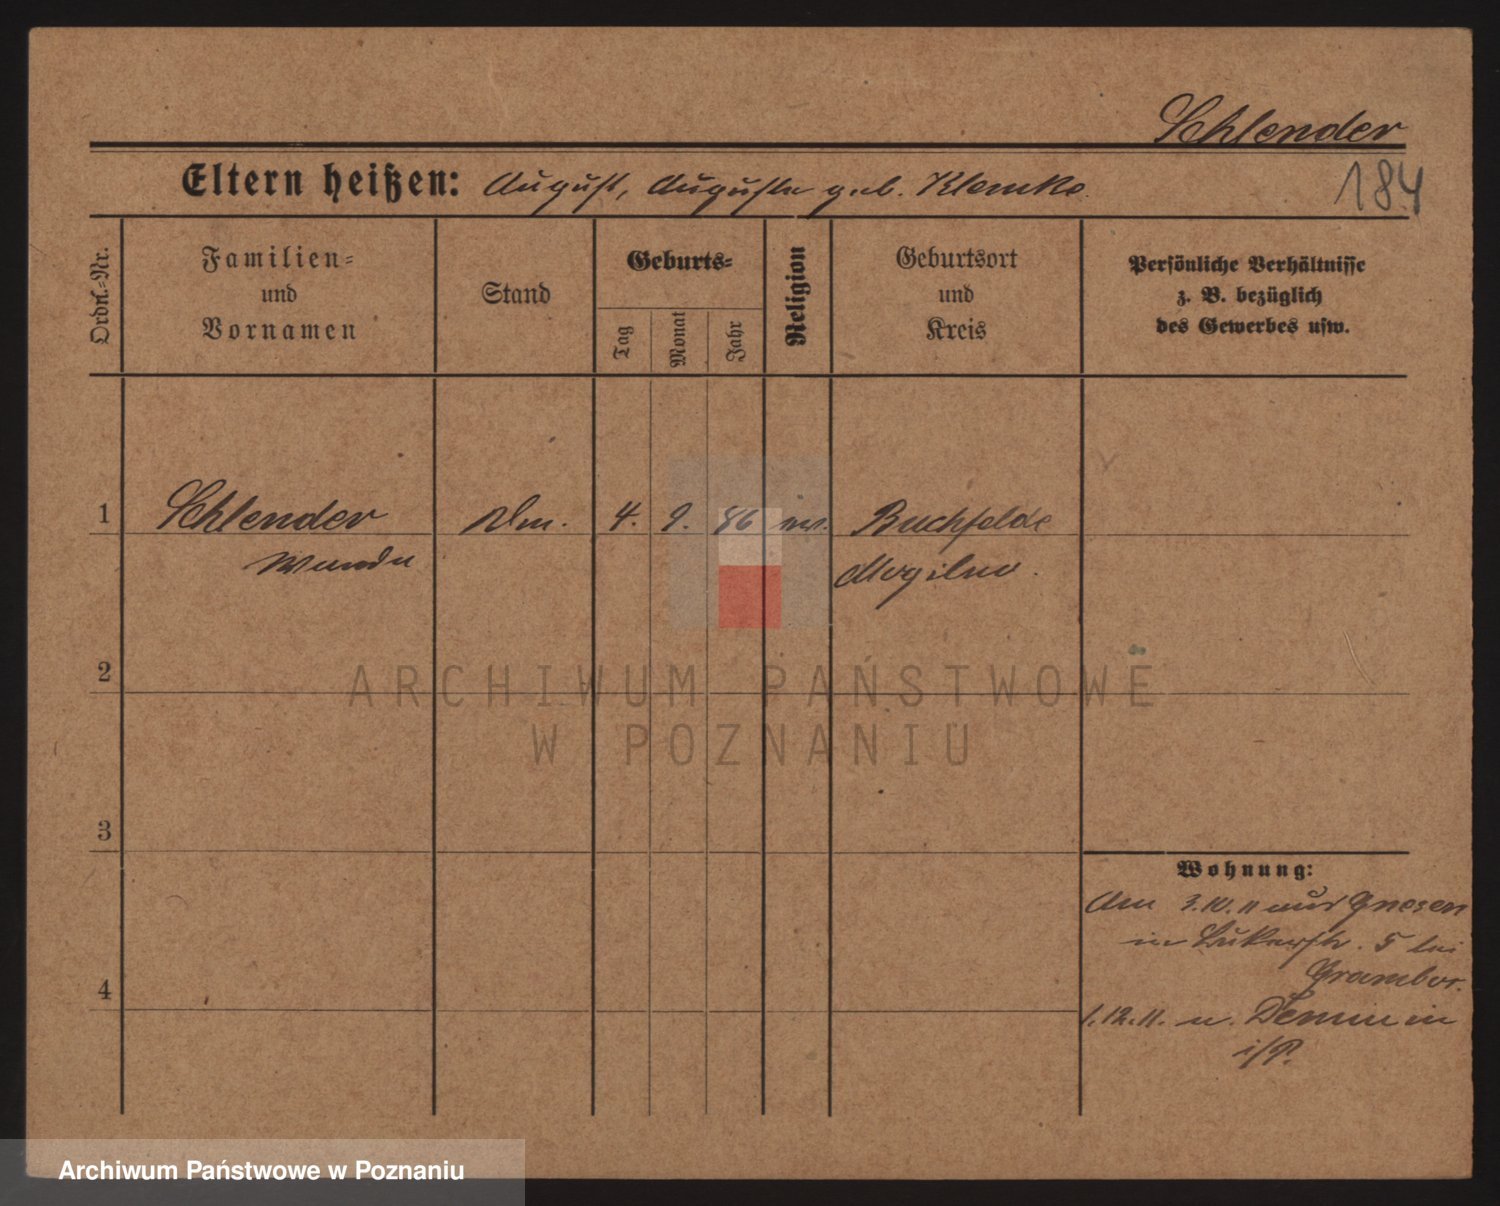 Schlender
Eltern heißen: August, Auguste geb. Klemke.
184
Ordn.-Nr.
Familien-
und
Vornamen
Stand
Geburts-
Tag
Monat
Jahr
Religion
Geburtsort
und
Kreis
Persönliche Verhältnisse
z. B. bezüglich
des Gewerbes usw.
1 Schlender 4. 9. 86 ev. Buchfelde
Wanda Mogilno.
2
3
4
Wohnung:
Am 3.10.11 aus Gnesen
in 5 bei
Grambor.
1.12.11. n. Demmin
i/P.
ARCHIWUM PAŃSTWOWE
W POZNANIU
Archiwum Państwowe w Poznaniu